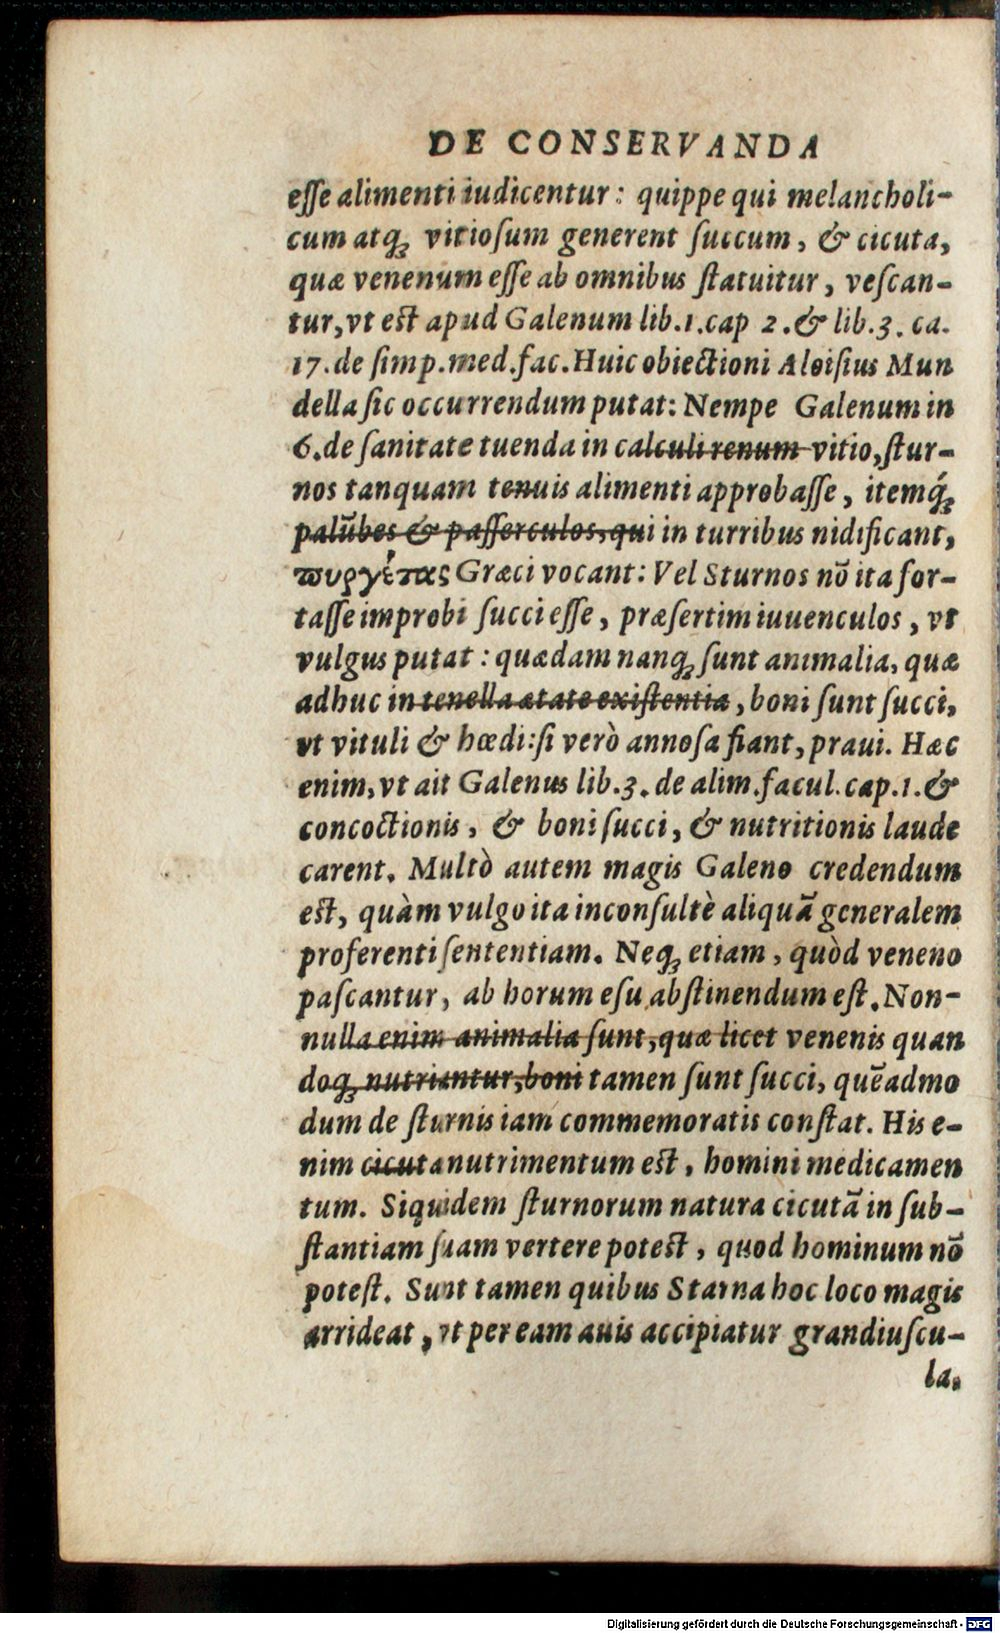 DE CONSERVANDA
esse alimenti iudicentur: quippe qui melancholi-
cum atq; vitiosum generent succum, & cicuta,
quæ venenum esse ab omnibus statuitur, vescan-
tur, vt est apud Galenum lib.1.cap 2.& lib.3. ca.
17.de simp.med.fac.Huic obiectioni Aloisius Mun
della sic occurrendum putat: Nempe Galenum in
6.de sanitate tuenda in calculi renum vitio, stur-
nos tanquam tenuis alimenti approbasse, itemq́;
palūbes & passerculos, qui in turribus nidificant,
πυργίτας Græci vocant: Vel Sturnos nō ita for-
tasse improbi succi esse, præsertim iuuenculos, vt
vulgus putat: quædam nanq; sunt animalia, quæ
adhuc in tenella ætate existentia, boni sunt succi,
vt vituli & hœdi: si verò annosa fiant, praui. Hæc
enim, vt ait Galenus lib.3. de alim.facul.cap.1.&
concoctionis, & boni succi, & nutritionis laude
carent. Multò autem magis Galeno credendum
est, quàm vulgo ita inconsultè aliquā generalem
proferenti sententiam. Neq; etiam, quòd veneno
pascantur, ab horum esu abstinendum est. Non-
nulla enim animalia sunt, quæ licet venenis quan
doq; nutriantur, boni tamen sunt succi, quēadmo
dum de sturnis iam commemoratis constat. His e-
nim cicuta nutrimentum est, homini medicamen
tum. Siquidem sturnorum natura cicutā in sub-
stantiam suam vertere potest, quod hominum nō
potest. Sunt tamen quibus Starna hoc loco magis
arrideat, vt per eam auis accipiatur grandiuscu-
la.
Digitalisierung gefördert durch die Deutsche Forschungsgemeinschaft - DFG